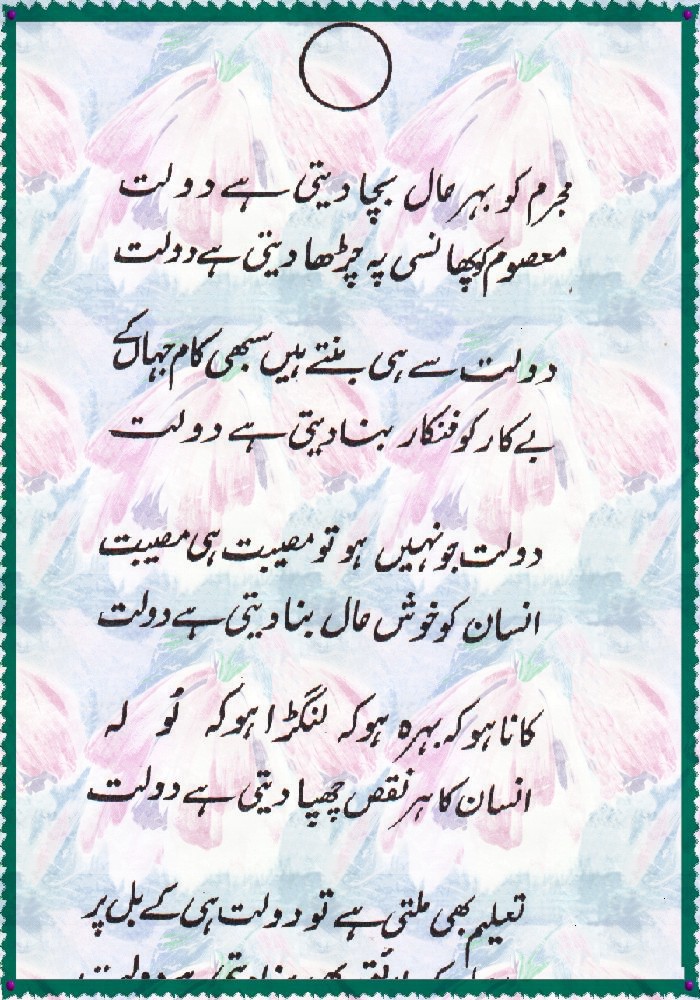 مجرم کو بہر حال بچا دیتی ہے دولت
معصوم کو پھانسی پہ چڑھا دیتی ہے دولت
دولت سے ہی بنتے ہیں سبھی کام جہاں کے
بے کار کو فنکار بنا دیتی ہے دولت
دولت جو نہیں ہو تو مصیبت ہی مصیبت
انسان کو خوش حال بنا دیتی ہے دولت
کانا ہو کہ بہرہ ہو کہ لنگڑا ہو کہ لُو لہ
انسان کا ہر نقص چھپا دیتی ہے دولت
تعلیم بھی ملتی ہے تو دولت ہی کے بل پر
بنا دیتی ہے دولت